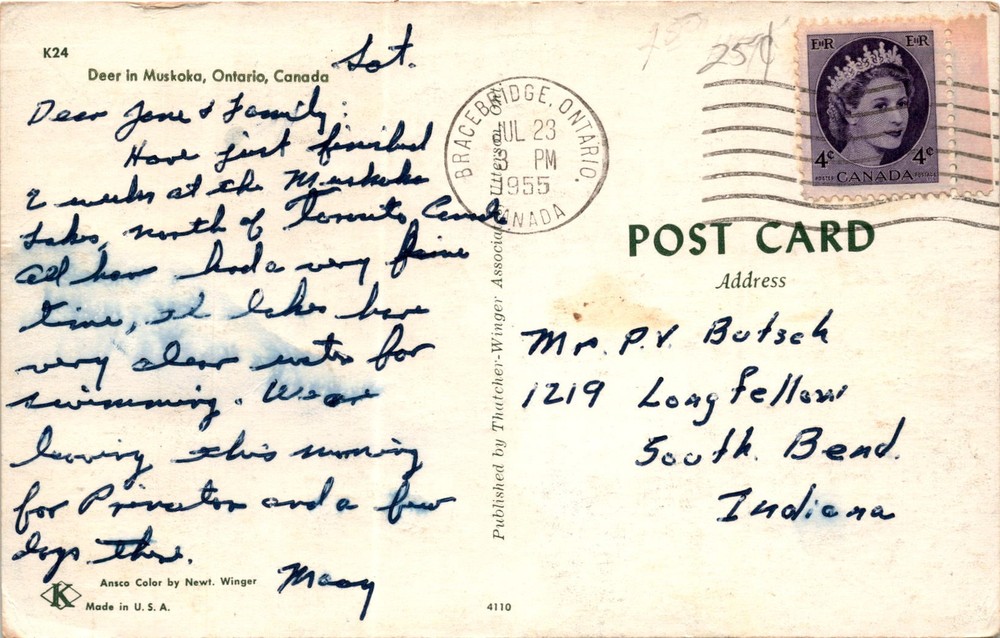 K24
Deer in Muskoka, Ontario, Canada
Sat.
Dear Jane & Family:
Have just finished
2 weeks at the Muskoka
Lakes, north of Toronto Canada
all have had a very fine
time, the lakes have
very clear water for
swimming. We are
leaving this morning
for Princeton and a few
days there.
Ansco Color by Newt. Winger
K
Made in U. S. A.
4110
Published by Thatcher-Winger Associates, Utterson, Ont.
BRACEBRIDGE, ONTARIO.
JUL 23
3 PM
1955
CANADA
25¢
EIIR EIIR
4¢ 4¢
POSTES CANADA POSTAGE
POST CARD
Address
Mr. P.V. Butsch
1219 Longfellow
South Bend.
Indiana